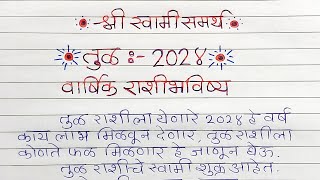 -श्री स्वामी समर्थ
तुळ :- 2024
वार्षिक राशीभविष्य
तुळ राशीला येणारे 2024 हे वर्ष
काय लाभ मिळवून देणार, तुळ राशीला
कोणते फळ मिळणार हे जाणून घेऊ.
तुळ राशीचे स्वामी शुक्र आहेत.